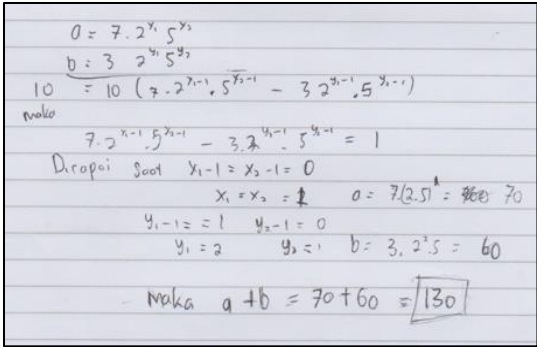 a = 7.2^x₁ 5^x₂
b = 3 2^y₁ 5^y₂
10 = 10 (7.2^x₁-1 . 5^x₂-1 - 3 2^y₁-1 . 5^y₂-1)
maka
7.2^x₁-1 . 5^x₂-1 - 3.2^y₁-1 . 5^y₂-1 = 1
Dicapai saat x₁-1 = x₂-1 = 0
x₁ = x₂ = 1 a = 7(2.5)¹ = 70
y₁-1 = = 1 y₂-1 = 0
y₁ = 2 y₂ = 1 b = 3. 2².5 = 60
maka a+b = 70+60 = 130